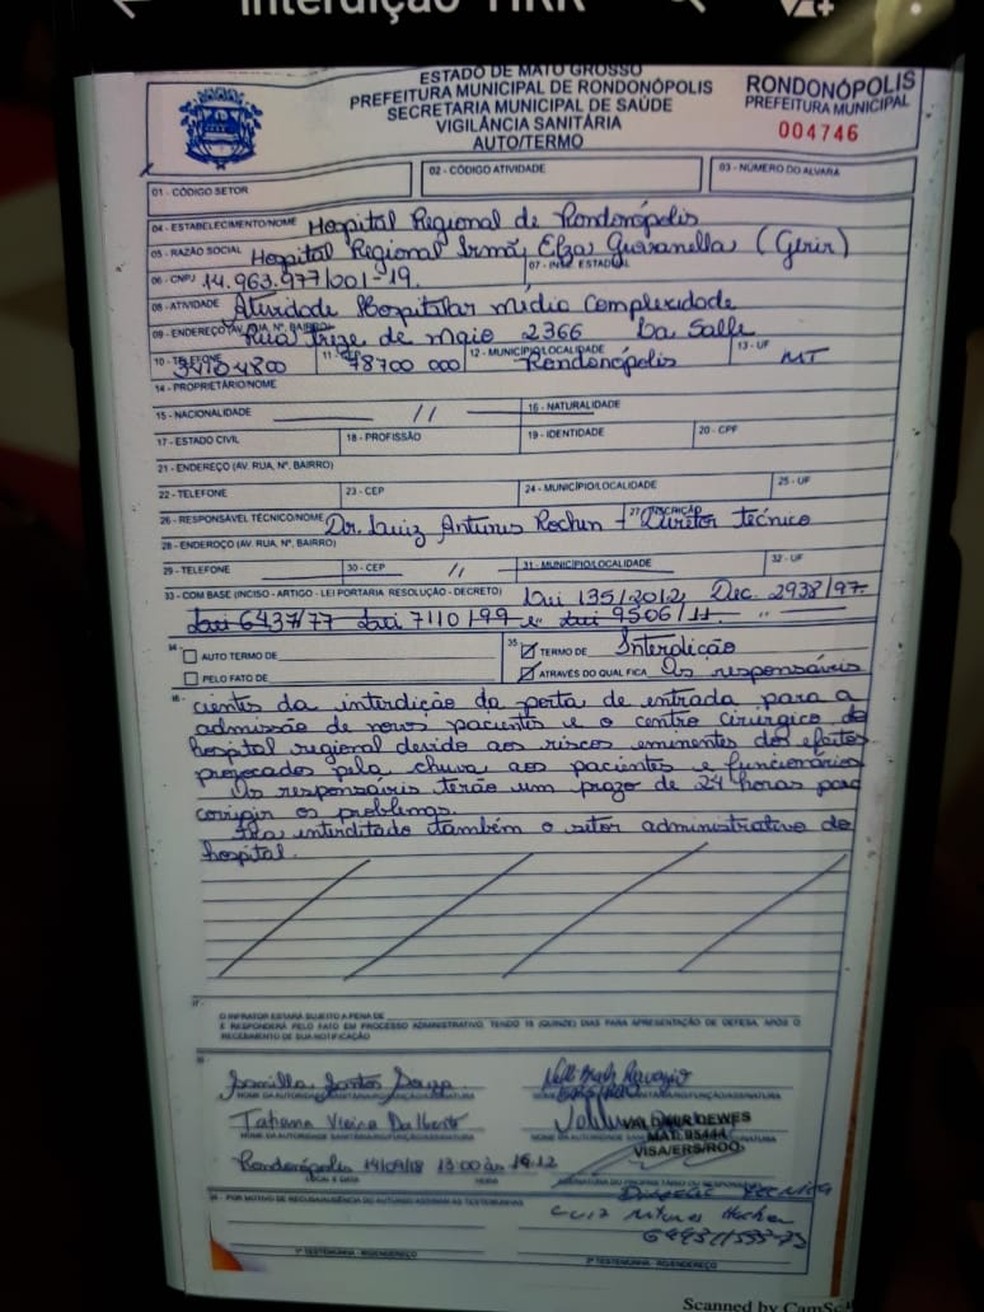 Interdição HRR
ESTADO DE MATO GROSSO
PREFEITURA MUNICIPAL DE RONDONÓPOLIS
SECRETARIA MUNICIPAL DE SAÚDE
VIGILÂNCIA SANITÁRIA
AUTO/TERMO
RONDONÓPOLIS
PREFEITURA MUNICIPAL
004746
01 - CÓDIGO SETOR
02 - CÓDIGO ATIVIDADE
03 - NÚMERO DO ALVARÁ
04 - ESTABELECIMENTO/NOME Hospital Regional de Rondonópolis
05 - RAZÃO SOCIAL Hospital Regional Irmã Elza Giovanella (Gerir)
06 - CNPJ 14.963.977/001-19. 07 - INSC. ESTADUAL
08 - ATIVIDADE Atividade Hospitalar média Complexidade
09 - ENDEREÇO (AV. RUA, Nº, BAIRRO) Rua Treze de Maio 2366 La Salle
10 - TELEFONE 34104800 11 - CEP 78700 000 12 - MUNICÍPIO/LOCALIDADE Rondonópolis 13 - UF MT
14 - PROPRIETÁRIO/NOME
15 - NACIONALIDADE // 16 - NATURALIDADE
17 - ESTADO CIVIL 18 - PROFISSÃO 19 - IDENTIDADE 20 - CPF
21 - ENDEREÇO (AV. RUA, Nº, BAIRRO)
22 - TELEFONE 23 - CEP 24 - MUNICÍPIO/LOCALIDADE 25 - UF
26 - RESPONSÁVEL TÉCNICO/NOME Dr. Luiz Antunes 27 - INSCRIÇÃO Diretor técnico
28 - ENDEROÇO (AV. RUA, Nº, BAIRRO)
29 - TELEFONE 30 - CEP // 31 - MUNICÍPIO/LOCALIDADE 32 - UF
33 - COM BASE (INCISO - ARTIGO - LEI PORTARIA RESOLUÇÃO - DECRETO) Lei 135/2012, Dec. 2938/97.
Lei 6437/77 Lei 7110/99 e Lei 9506/11.
34 - AUTO TERMO DE 35 - TERMO DE Interdição
PELO FATO DE ATRAVÉS DO QUAL FICA Os responsáveis
36 - cientes da interdição da porta de entrada para a
admissão de novos pacientes e o centro cirurgico do
hospital regional devido aos riscos eminentes dos efeitos
provocados pela chuva aos pacientes e funcionários
Os responsáveis terão um prazo de 24 horas para
corrigir os problemas.
Fica interditado também o setor administrativo do
hospital.
37 -
O INFRATOR ESTARÁ SUJEITO A PENA DE
E RESPONDERÁ PELO FATO EM PROCESSO ADMINISTRATIVO, TENDO 15 (QUINZE) DIAS PARA APRESENTAÇÃO DE DEFESA, APÓS O
RECEBIMENTO DE SUA NOTIFICAÇÃO
38 -
Santos Souza
NOME DA AUTORIDADE SANITÁRIA/RG/FUNÇÃO/ASSINATURA
Tatiana Vieira Dalberto VALDEMIR DEWES
NOME DA AUTORIDADE SANITÁRIA/RG/FUNÇÃO/ASSINATURA MAT. 95444
VISA/ERS/ROO
Rondonópolis 14/09/18 13:00 às
LOCAL E DATA HORA
39 - POR MOTIVO DE RECUSA/AUSÊNCIA DO AUTUADO ASSINAM AS TESTEMUNHAS
Luiz
1ª TESTEMUNHA - RG/ENDEREÇO
2ª TESTEMUNHA - RG/ENDEREÇO
Scanned by CamSc